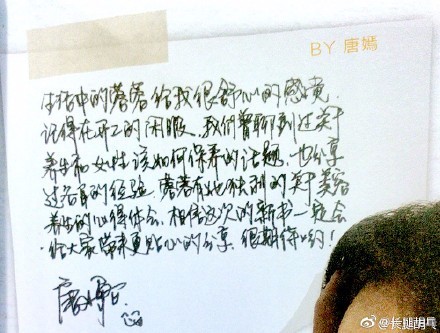 BY 唐嫣
生活中的蓉蓉给我很舒心的感觉.
记得在开工的闲暇.我们曾聊到过关于
养生和女性该如何保养的话题.也分享
过各自的经验.蓉蓉有她独到的关于美容
养生的心得体会.相信这次的新书一定会
给大家带来更贴心的分享.很期待哟!
唐嫣
@长腿胡兵